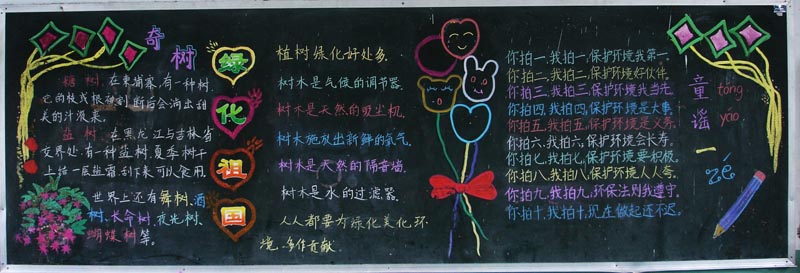 奇树
糖树，在柬埔寨，有一种树，
它的枝或根被割断后会淌出甜
美的汁液来。
盐树，在黑龙江与吉林省
交界处，有一种盐树，夏季树干
上结一层盐霜，刮下来可以食用。
世界上还有舞树、酒
树、长命树、夜光树、
蝴蝶树等。
绿
化
祖
国
植树绿化好处多
树木是气候的调节器。
树木是天然的吸尘机。
树木施放出新鲜的氧气。
树木是天然的隔音墙。
树木是水的过滤器。
人人都要为绿化美化环
境，多作贡献。
你拍一,我拍一,保护环境我第一
你拍二,我拍二,保护环境好伙伴。
你拍三,我拍三,保护环境我当先。
你拍四,我拍四,保护环境是大事。
你拍五,我拍五,保护环境是义务。
你拍六,我拍六,保护环境会长寿。
你拍七,我拍七,保护环境要积极。
你拍八,我拍八,保护环境人人夸。
你拍九,我拍九,环保法则我遵守。
你拍十,我拍十,现在做起还不迟。
童 tóng
谣 yáo
一
zé